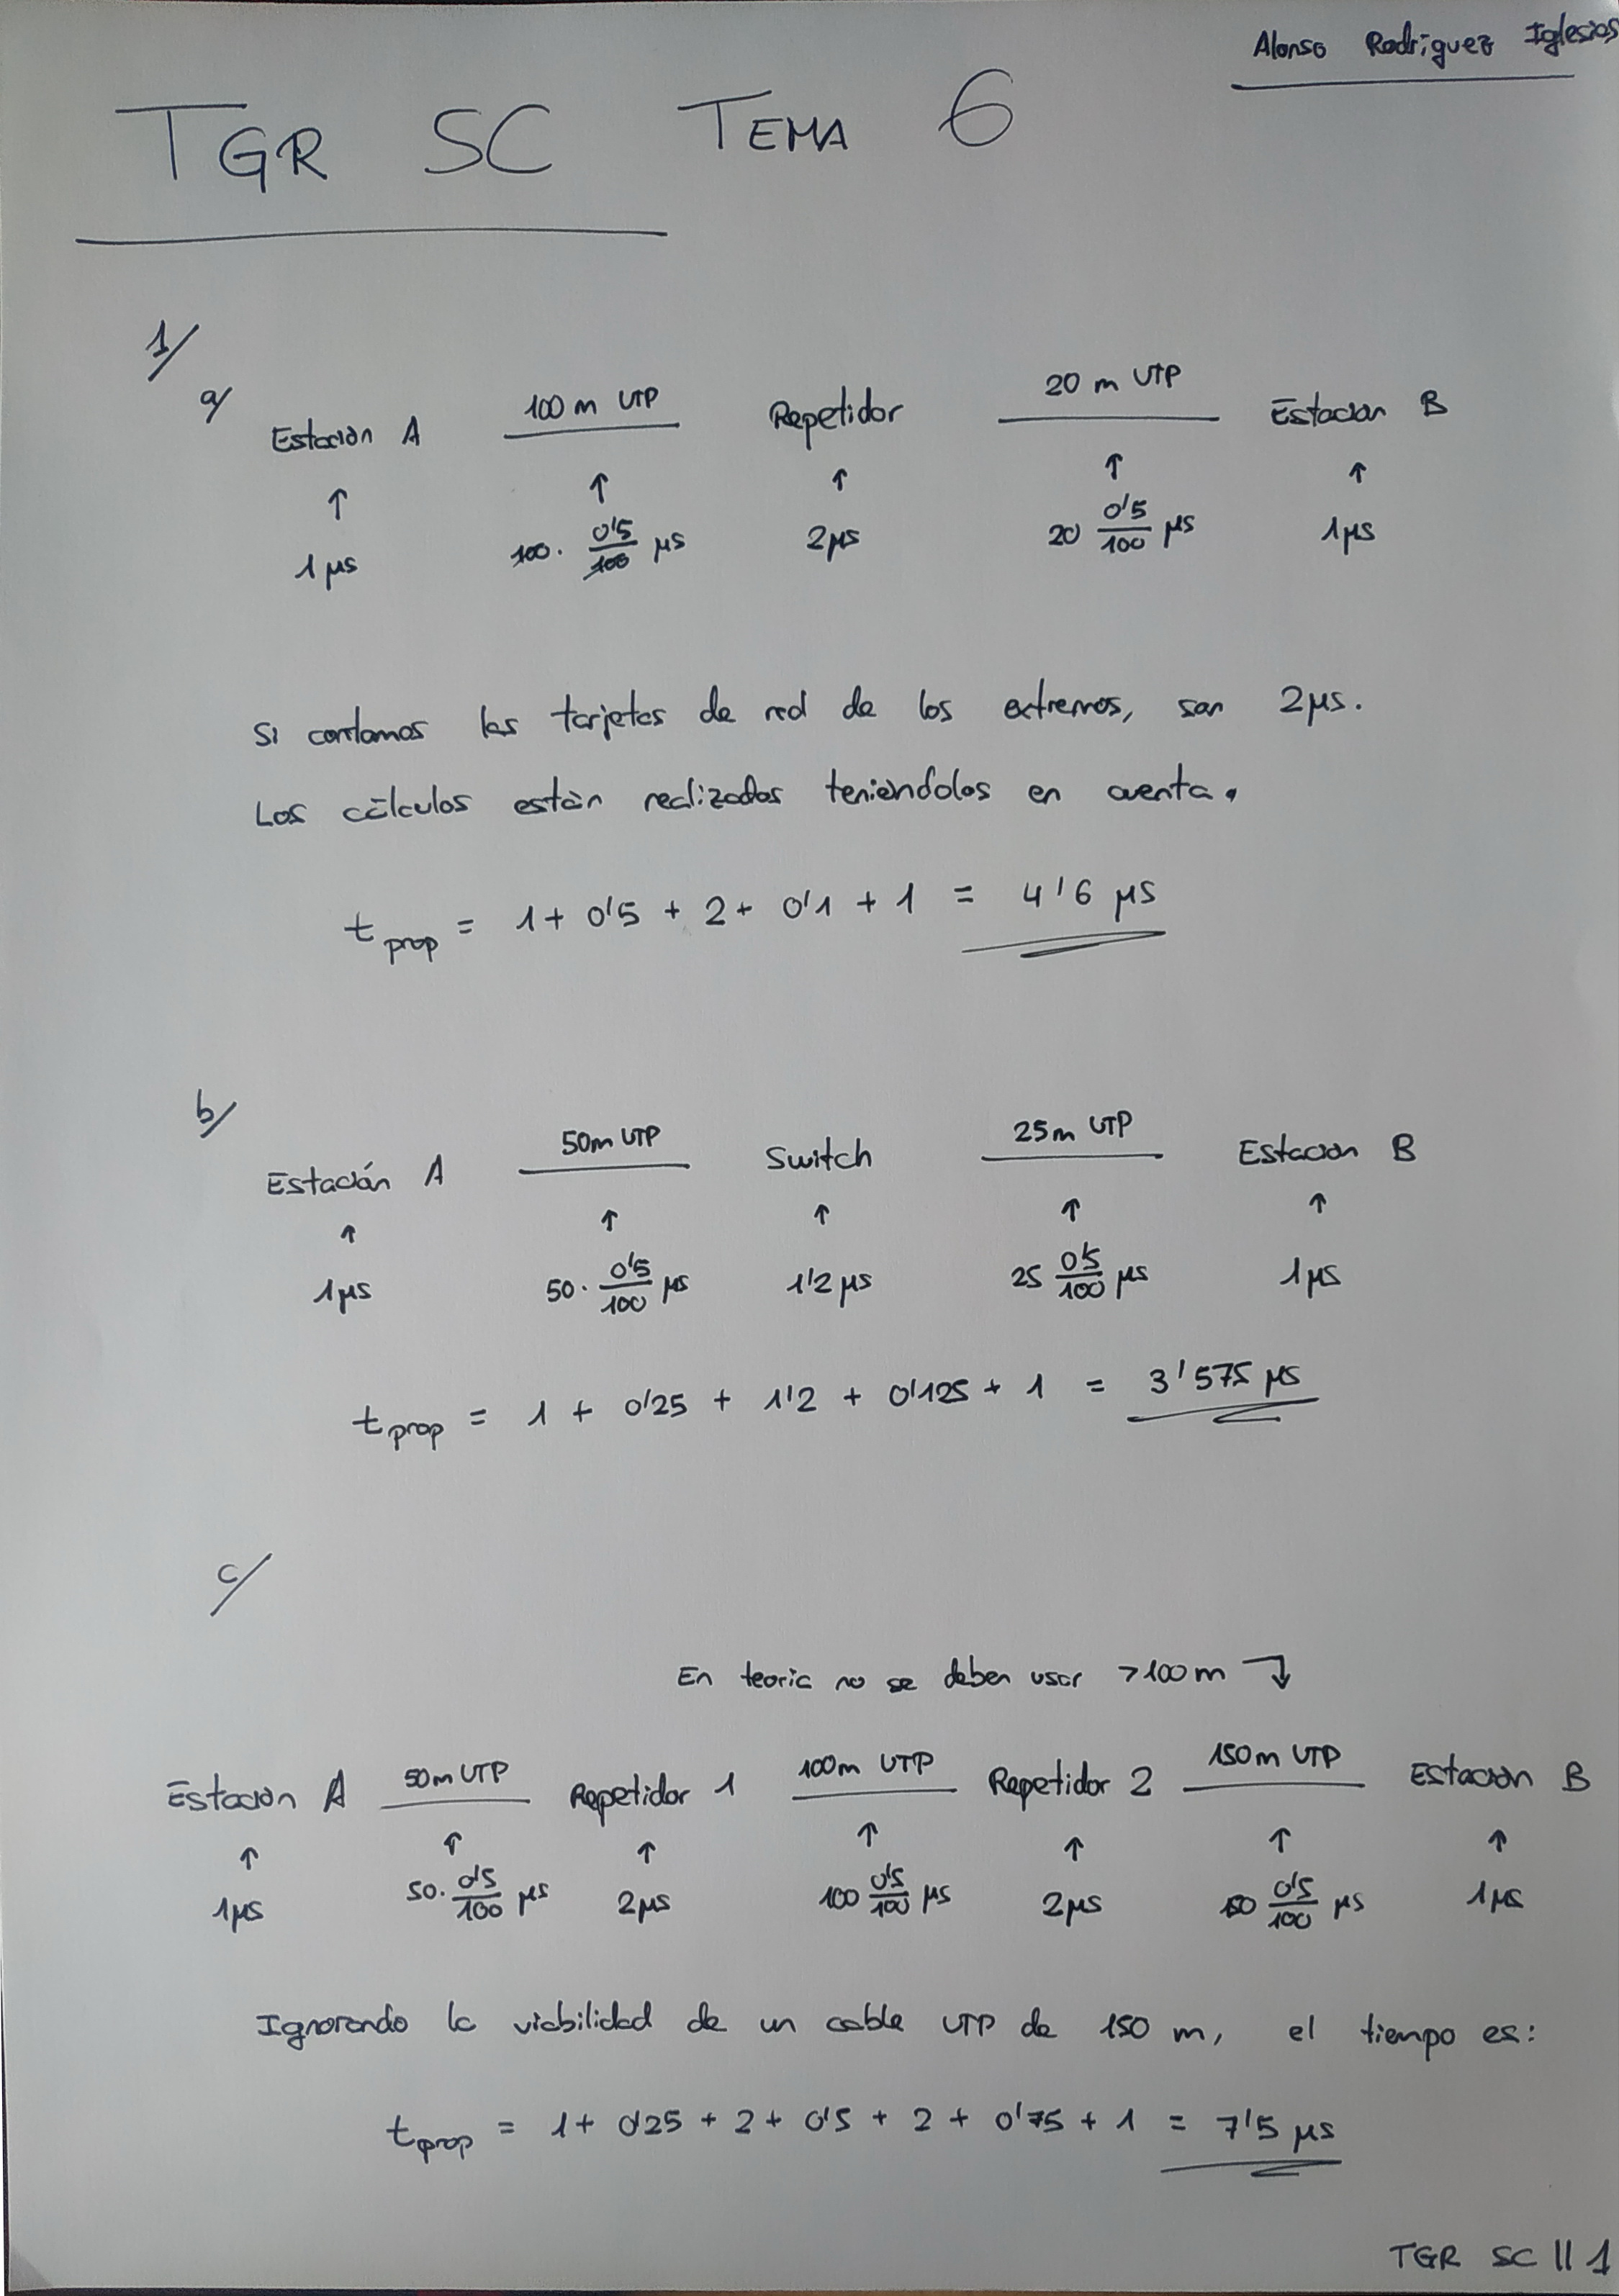 Alonso Rodríguez Iglesias
TGR SC TEMA 6
1/
a/
Estación A 100 m UTP Repetidor 20 m UTP Estación B
↑ ↑ ↑ ↑ ↑
1 μs 100 · 0'5/100 μs 2 μs 20 0'5/100 μs 1 μs
Si contamos las tarjetas de red de los extremos, son 2 μs.
Los cálculos están realizados teniéndolos en cuenta.
t prop = 1 + 0'5 + 2 + 0'1 + 1 = 4'6 μs
b/
Estación A 50 m UTP Switch 25 m UTP Estación B
↑ ↑ ↑ ↑ ↑
1 μs 50 · 0'5/100 μs 1'2 μs 25 0'5/100 μs 1 μs
t prop = 1 + 0'25 + 1'2 + 0'125 + 1 = 3'575 μs
c/
En teoría no se deben usar >100 m
Estación A 50 m UTP Repetidor 1 100 m UTP Repetidor 2 150 m UTP Estación B
↑ ↑ ↑ ↑ ↑ ↑ ↑
1 μs 50 · 0'5/100 μs 2 μs 100 0'5/100 μs 2 μs 150 0'5/100 μs 1 μs
Ignorando la viabilidad de un cable UTP de 150 m, el tiempo es:
t prop = 1 + 0'25 + 2 + 0'5 + 2 + 0'75 + 1 = 7'5 μs
TGR SC || 1